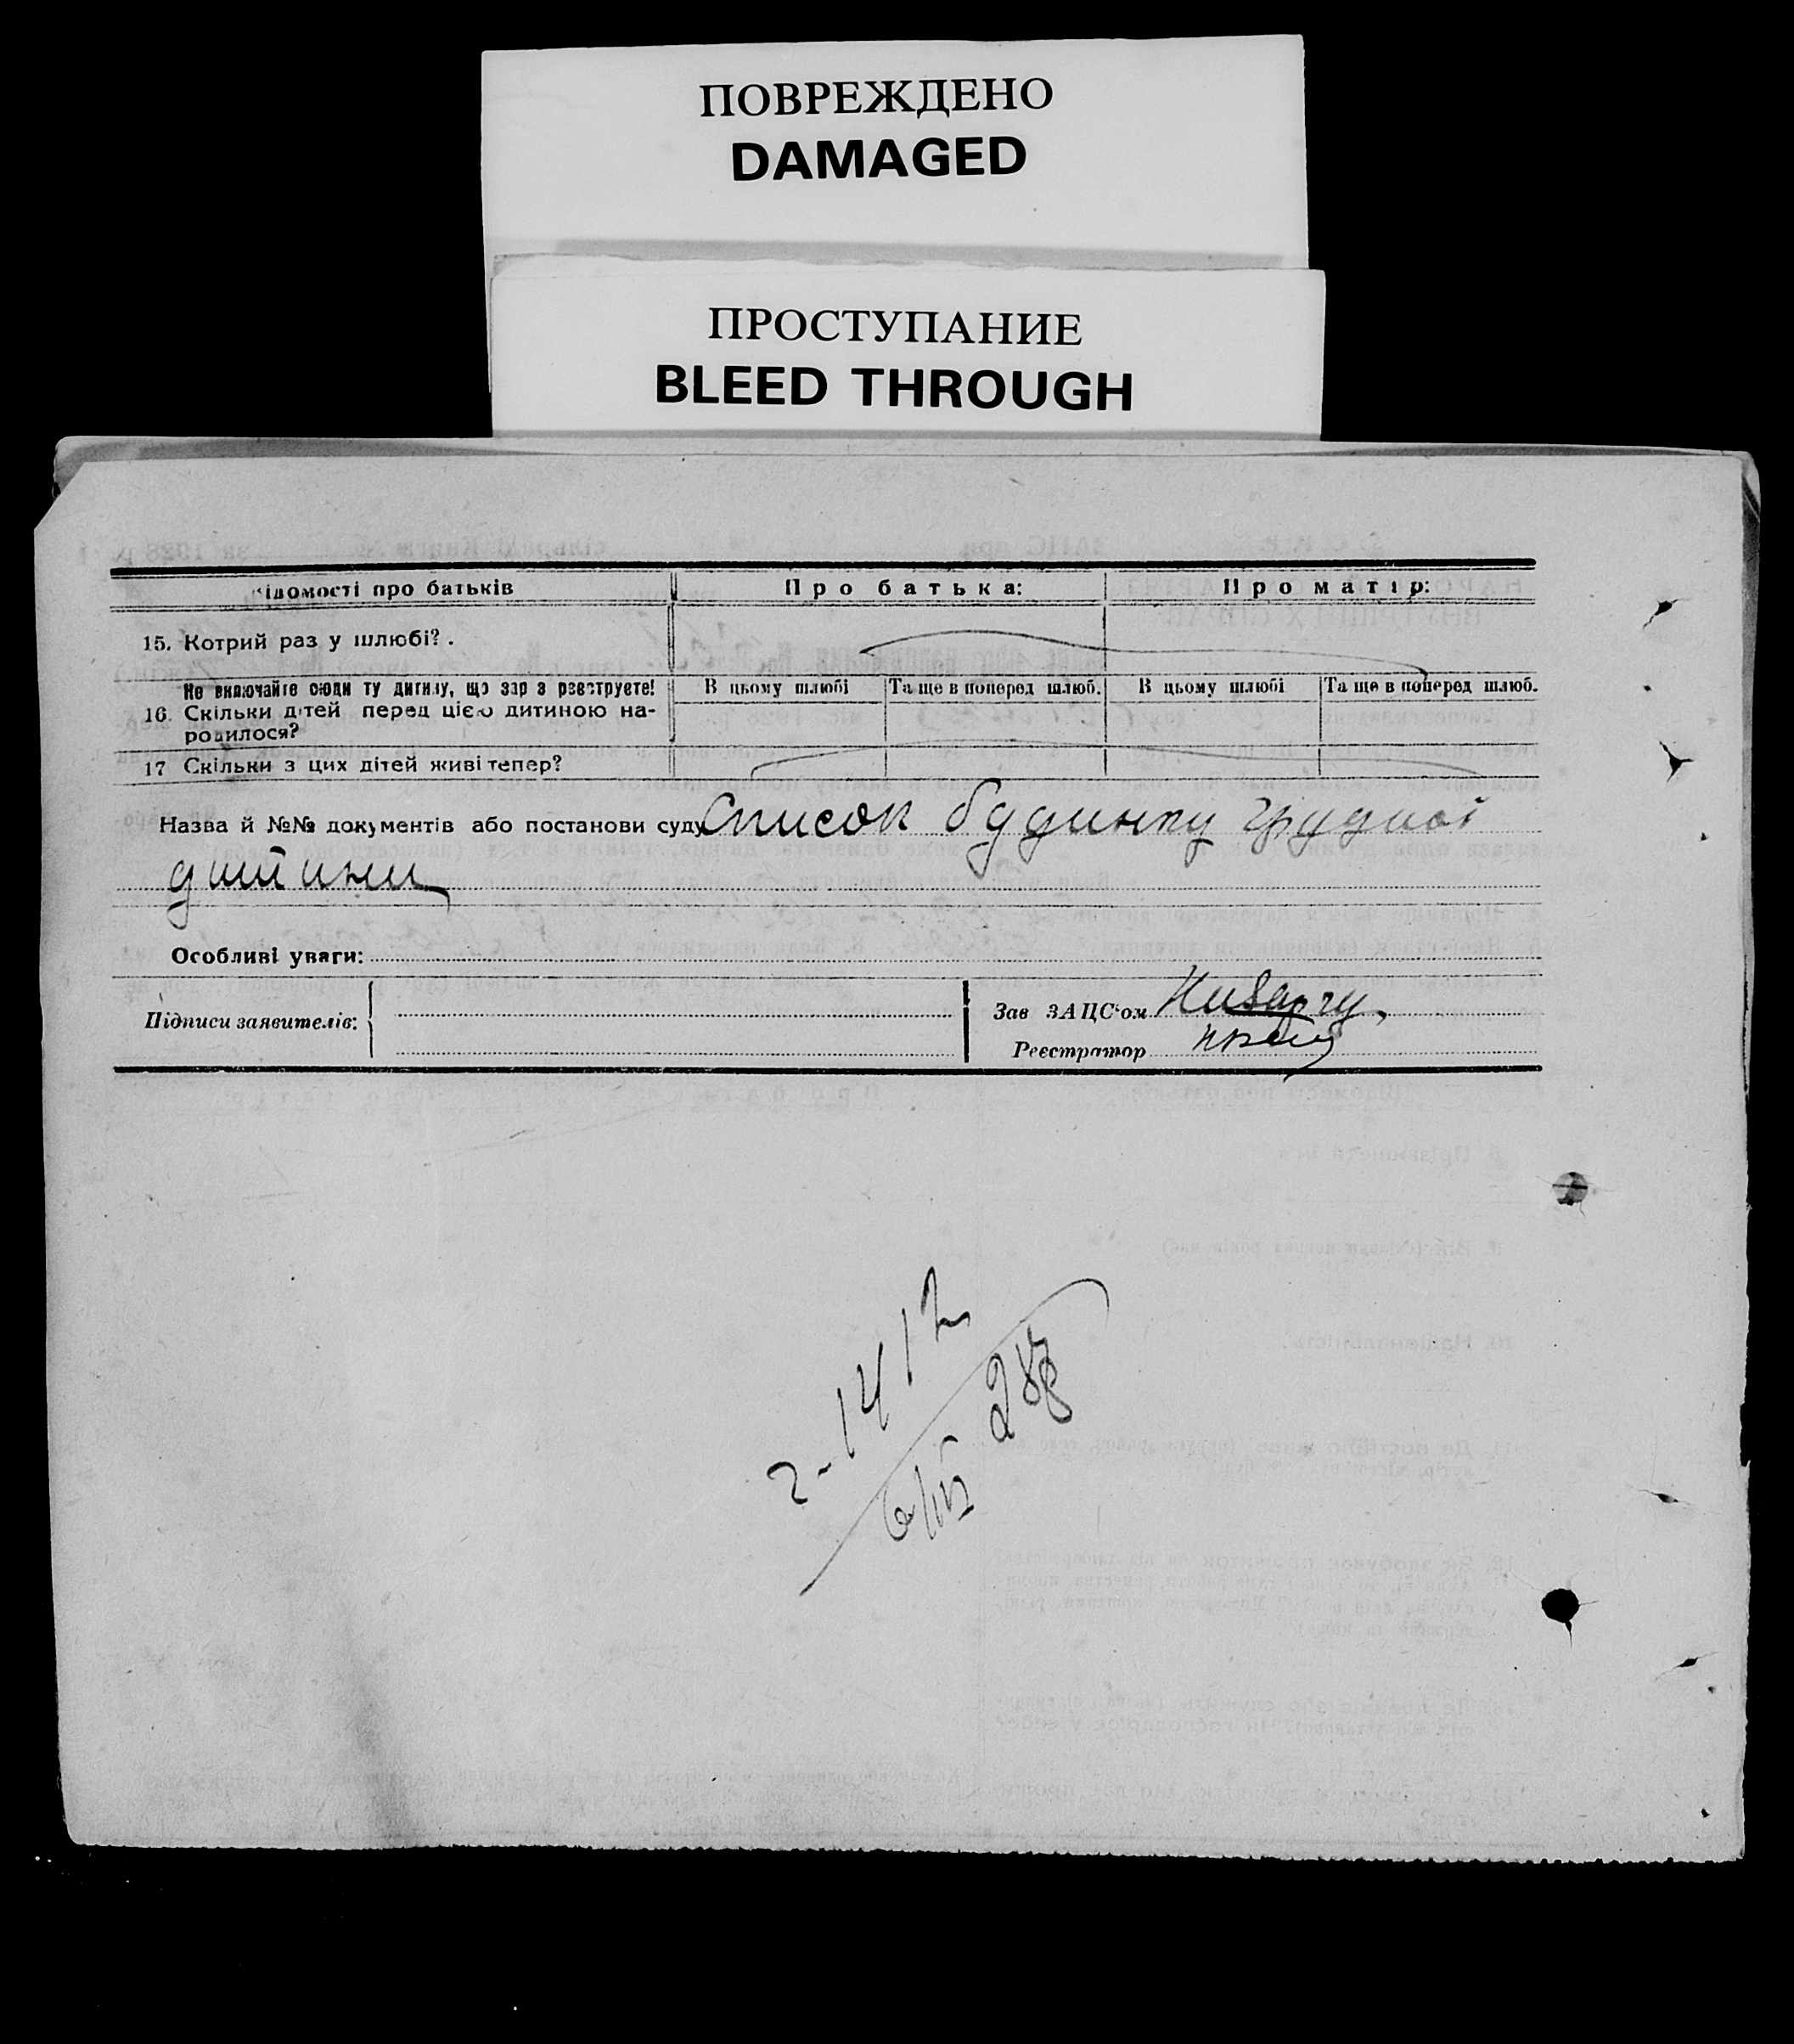 ПОВРЕЖДЕНО
DAMAGED
ПРОСТУПАНИЕ
BLEED THROUGH
ідомості про батьків
Про батька:
Про матір:
15. Котрий раз у шлюбі?.
Не включайте сюди ту дитину, що зараз реєструєте!
16. Скільки дітей перед цією дитиною на-
родилося?
В цьому шлюбі
Та ще в поперед шлюб.
В цьому шлюбі
Та ще в поперед шлюб.
17 Скільки з цих дітей живі тепер?
Назва й №№ документів або постанови суду Список будинку грудної
дитини
Особливі уваги:
Підписи заявителів:
Зав ЗАЦС'ом
Реєстратор
2-1412
6/III 28